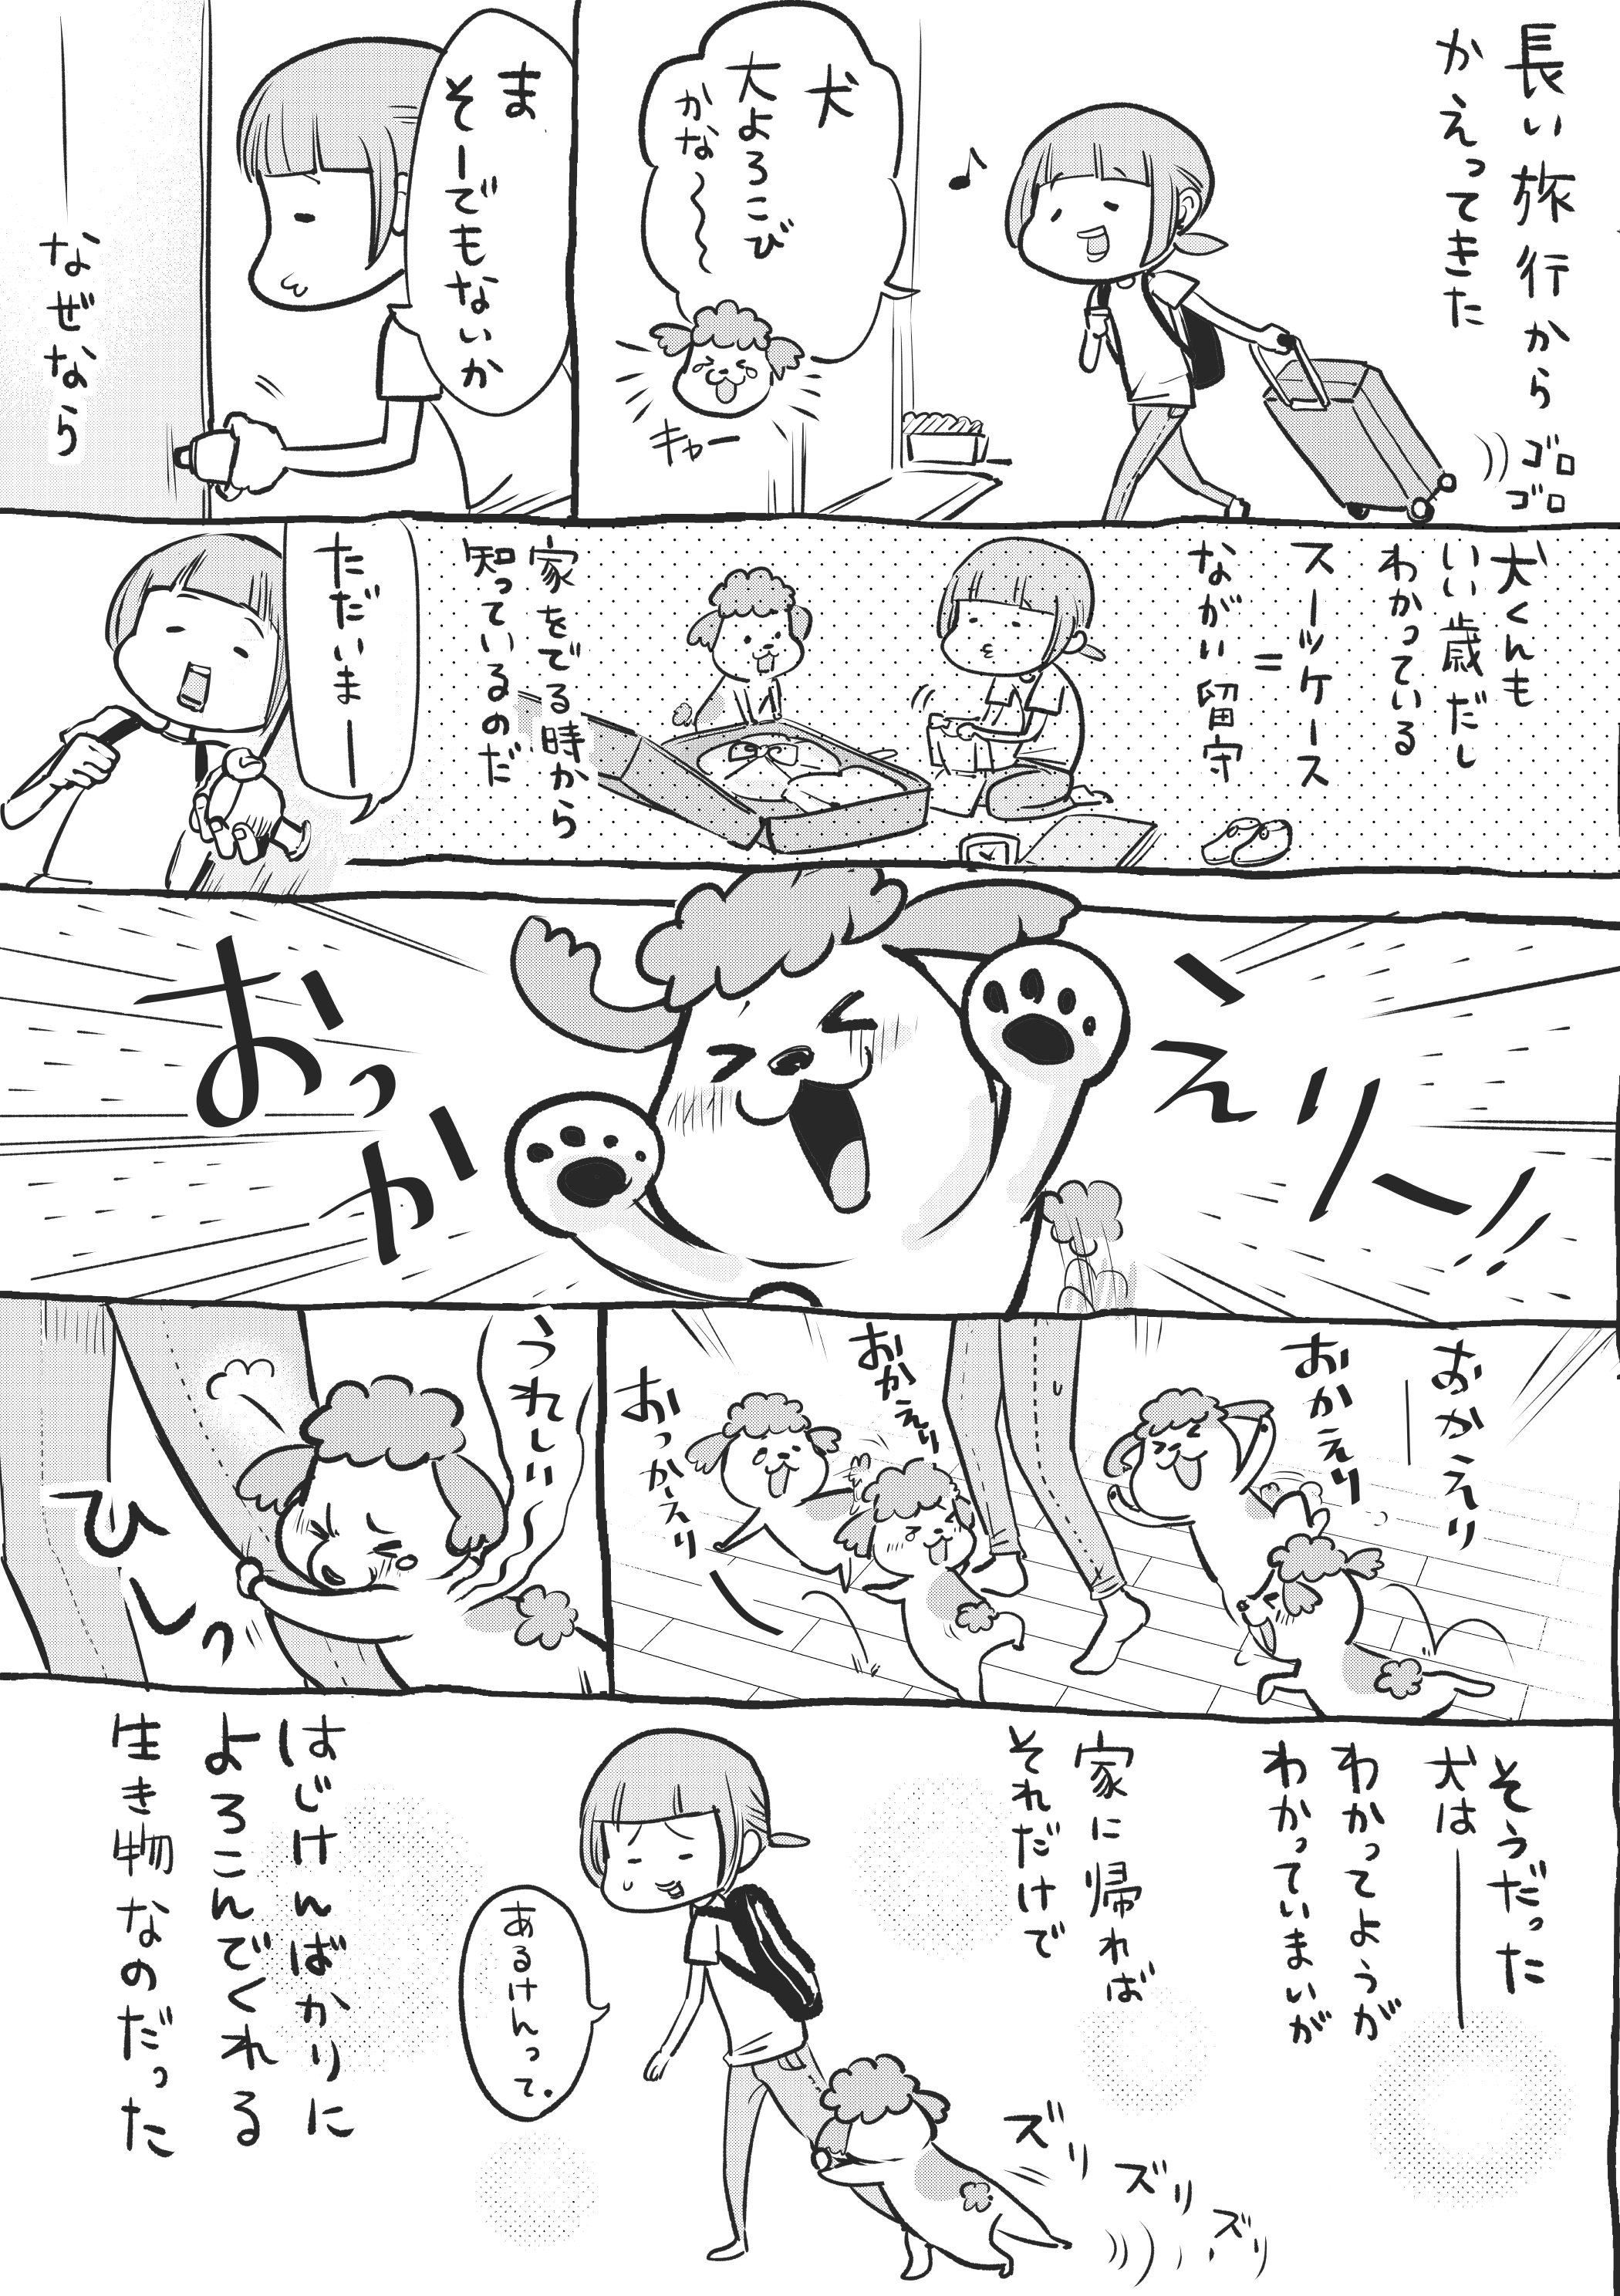 長い旅行から
かえってきた
ゴロ
ゴロ
犬
大よろこび
かな～～
キャー
ま
そーでもないか
なぜなら
犬くんも
いい歳だし
わかっている
スーツケース
=
ながい留守
家をでる時から
知っているのだ
ただいまー
おっかえりー!!
おかえり
おかえり
おかえり
おっかーえり
うれしい
ひしっ
そうだった
犬は―
わかってようが
わかっていまいが
家に帰れば
それだけで
あるけんって.
ズリ
ズリ
ズリ
はじけんばかりに
よろこんでくれる
生き物なのだった